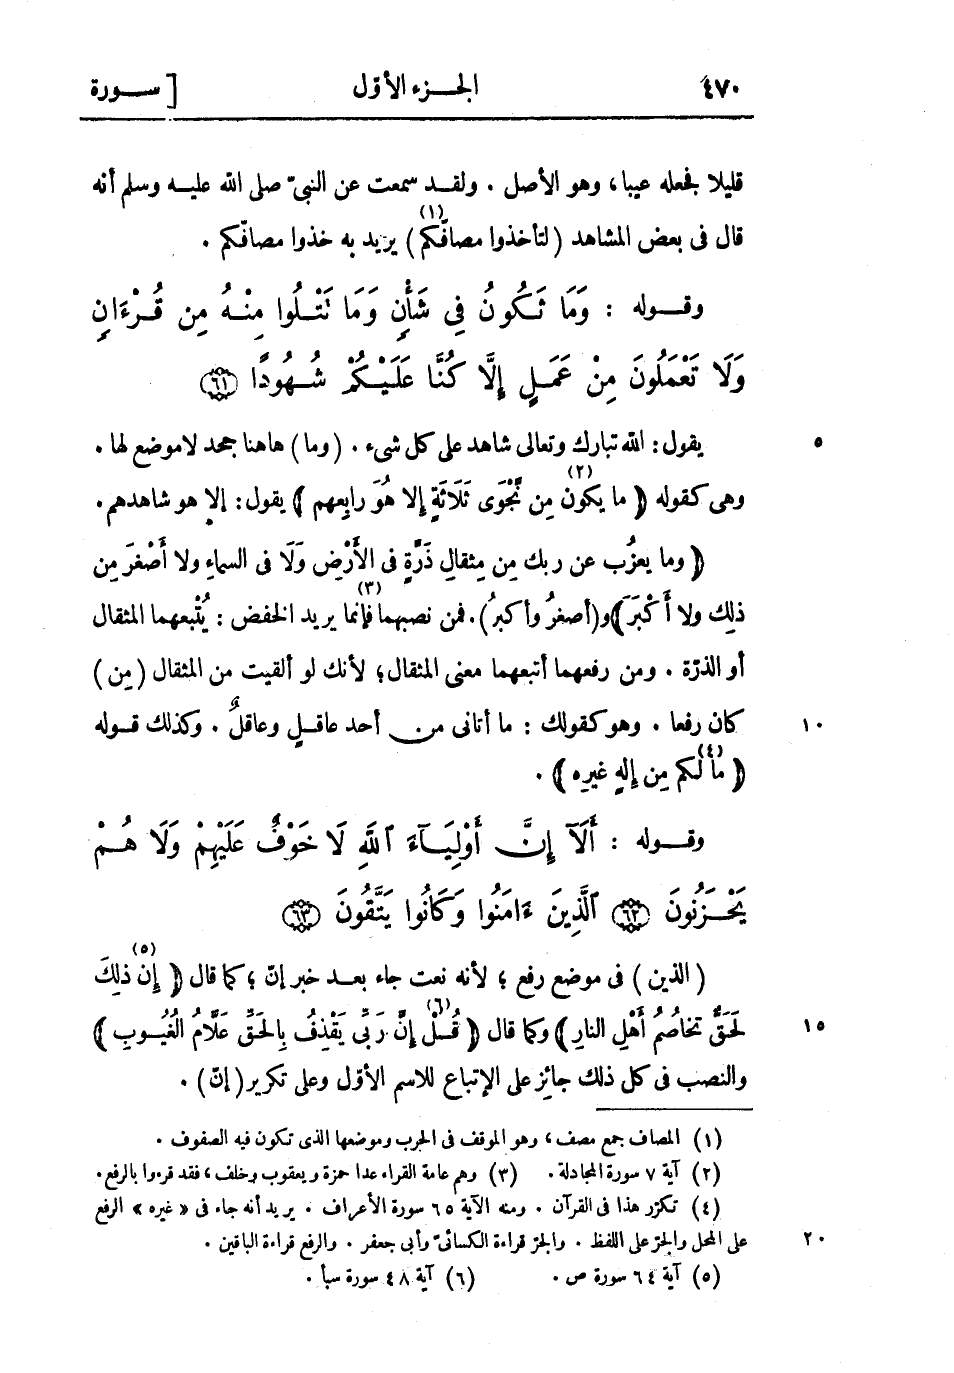 ٤٧٠ الجـزء الأوّل [ سـورة
قليلا فجعله عيبا، وهو الأصل . ولقـد سمعت عن النبىّ صلى الله عليـه وسلم أنه
قال فى بعض المشاهد ( لتأخذوا مصافّكم ) (١) يريد به خذوا مصافّكم .
وقـوله : وَمَا تَكُونُ فِى شَأْنٍ وَمَا تَتْلُوا مِنْهُ مِن قُرْءَانٍ
وَلَا تَعْمَلُونَ مِنْ عَمَلٍ إِلَّا كُنَّا عَلَيْكُمْ شُهُودًا ﴿٦١﴾
يقول : الله تبارك وتعالى شاهد على كل شىء . ( وما ) هاهنا جحد لاموضع لها . ٥
وهى كقوله ﴿ ما يكون مِن نَّجْوَى ثَلَاثَةٍ إلا هُوَ رابِعهم ﴾ (٢) يقول : إلا هو شاهدهم .
﴿ وما يعزُب عن ربك مِن مِثقالِ ذَرَّةٍ فى الأَرْضِ وَلَا فى السماءِ ولا أَصْغَرَ مِن
ذلِك ولا أَكْبَرَ ﴾ و(أصغرُ وأكبرُ) . فمن نصبهما (٣) فإنما يريد الخفض : يُتْبعهما المثقال
أو الذرّة . ومن رفعهما أتبعهما معنى المثقال؛ لأنك لو ألقيت من المثقال ( مِن )
كان رفعا . وهو كقولك : ما أتانى من أحد عاقـلٍ وعاقلٌ . وكذلك قـوله ١٠
﴿ ما لكم مِن إلهٍ غيرِه ﴾ (٤) .
وقـوله : أَلَآ إِنَّ أَوْلِيَآءَ ٱللَّهِ لَا خَوْفٌ عَلَيْهِمْ وَلَا هُمْ
يَحْزَنُونَ ﴿٦٢﴾ ٱلَّذِينَ ءَامَنُوا وَكَانُوا يَتَّقُونَ ﴿٦٣﴾
( الذين ) فى موضع رفع ؛ لأنه نعت جاء بعـد خبر إنّ ؛ كما قال ﴿ إِن ذلِكَ (٥)
لَحَقٌّ تخاصُمُ أَهْلِ النارِ ﴾ وكما قال ﴿ قُـلْ إِنَّ رَبِّى يَقْذِفُ بِالحَقِّ عَلَّامُ الغُيُوبِ ﴾ (٦) ١٥
والنصب فى كل ذلك جائز على الإتباع للاسم الأوّل وعلى تكرير ( إنّ ) .
(١) المصاف جمع مصف، وهو الموقف فى الحرب وموضعها الذى تكون فيه الصفوف .
(٢) آية ٧ سورة المجادلة . (٣) وهم عامة القراء عدا حمزة ويعقوب وخلف، فقد قرءوا بالرفع .
(٤) تكرّر هذا فى القرآن . ومنه الآية ٦٥ سورة الأعراف . يريد أنه جاء فى « غيره » الرفع
على المحل والجرّ على اللفظ . والجرّ قراءة الكسائىّ وأبى جعفر . والرفع قراءة الباقين . ٢٠
(٥) آية ٦٤ سورة ص . (٦) آية ٤٨ سورة سبأ .